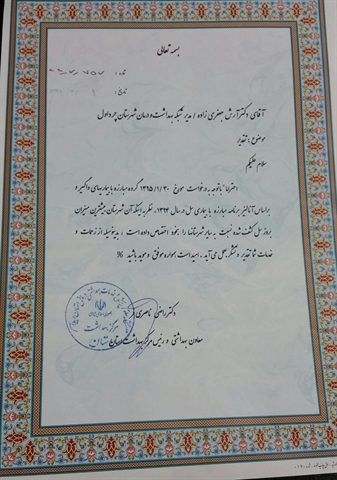 بسمه تعالی
شماره:
تاریخ:
آقای دکتر آرش جعفری زاده / مدیر شبکه بهداشت و درمان شهرستان چرداول
موضوع: تقدیر
سلام علیکم
احتراماً باتوجه به درخواست مورخ ۱۳۹۵/۱/۳۰ گروه مبارزه با بیماریهای واگیر و
براساس آنالیز برنامه مبارزه با بیماری سل در سال ۱۳۹۴، نظر به اینکه آن شهرستان بیشترین میزان
بروز سل کشف شده نسبت به سایر شهرستانها را بخود اختصاص داده است، بدینوسیله از زحمات و
خدمات شما تقدیر و تشکر بعمل می آید. امید است همواره موفق و موید باشید %
دکتر راضی ناصری
معاون بهداشتی و رئیس مرکز بهداشت استان
مرکز بهداشت